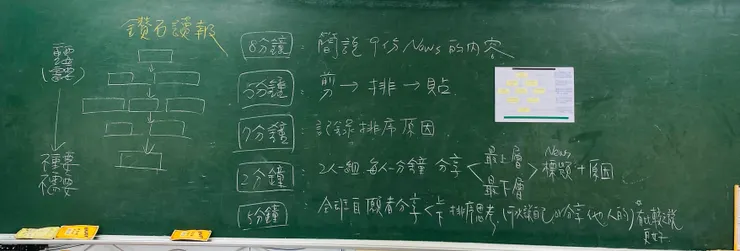 鑽石讀報
重要
(需要)
不重要
不需要
8分鐘 : 簡說 9份 News 的內容
5分鐘 : 剪→排→貼
7分鐘 : 記錄排序原因
2分鐘 : 2人一組 每人一分鐘 分享 < 最上層 最下層 > News 標題+原因
5分鐘 : 全班自願者分享 < 上 下 排序思考, 分享(他人的)